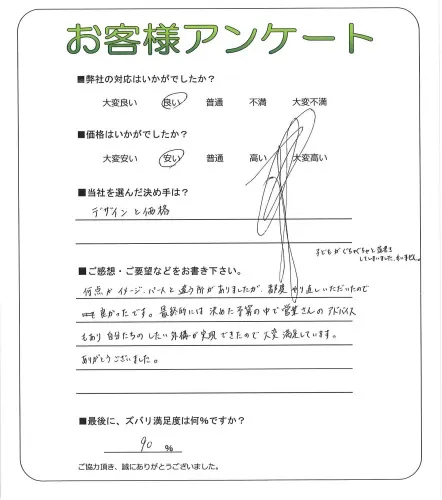 お客様アンケート
■弊社の対応はいかがでしたか？
大変良い 良い 普通 不満 大変不満
■価格はいかがでしたか？
大変安い 安い 普通 高い 大変高い
■当社を選んだ決め手は？
デザインと価格
子どもがぐちゃぐちゃと落書き
してしまいました。すいません。
■ご感想・ご要望などをお書き下さい。
何点かイメージ、パースと違う所がありましたが、都度やり直しいただいたので
良かったです。最終的には決めた予算の中で営業さんのアドバイス
もあり自分たちのしたい外構が実現できたので大変満足しています。
ありがとうございました。
■最後に、ズバリ満足度は何％ですか？
90 ％
ご協力頂き、誠にありがとうございました。